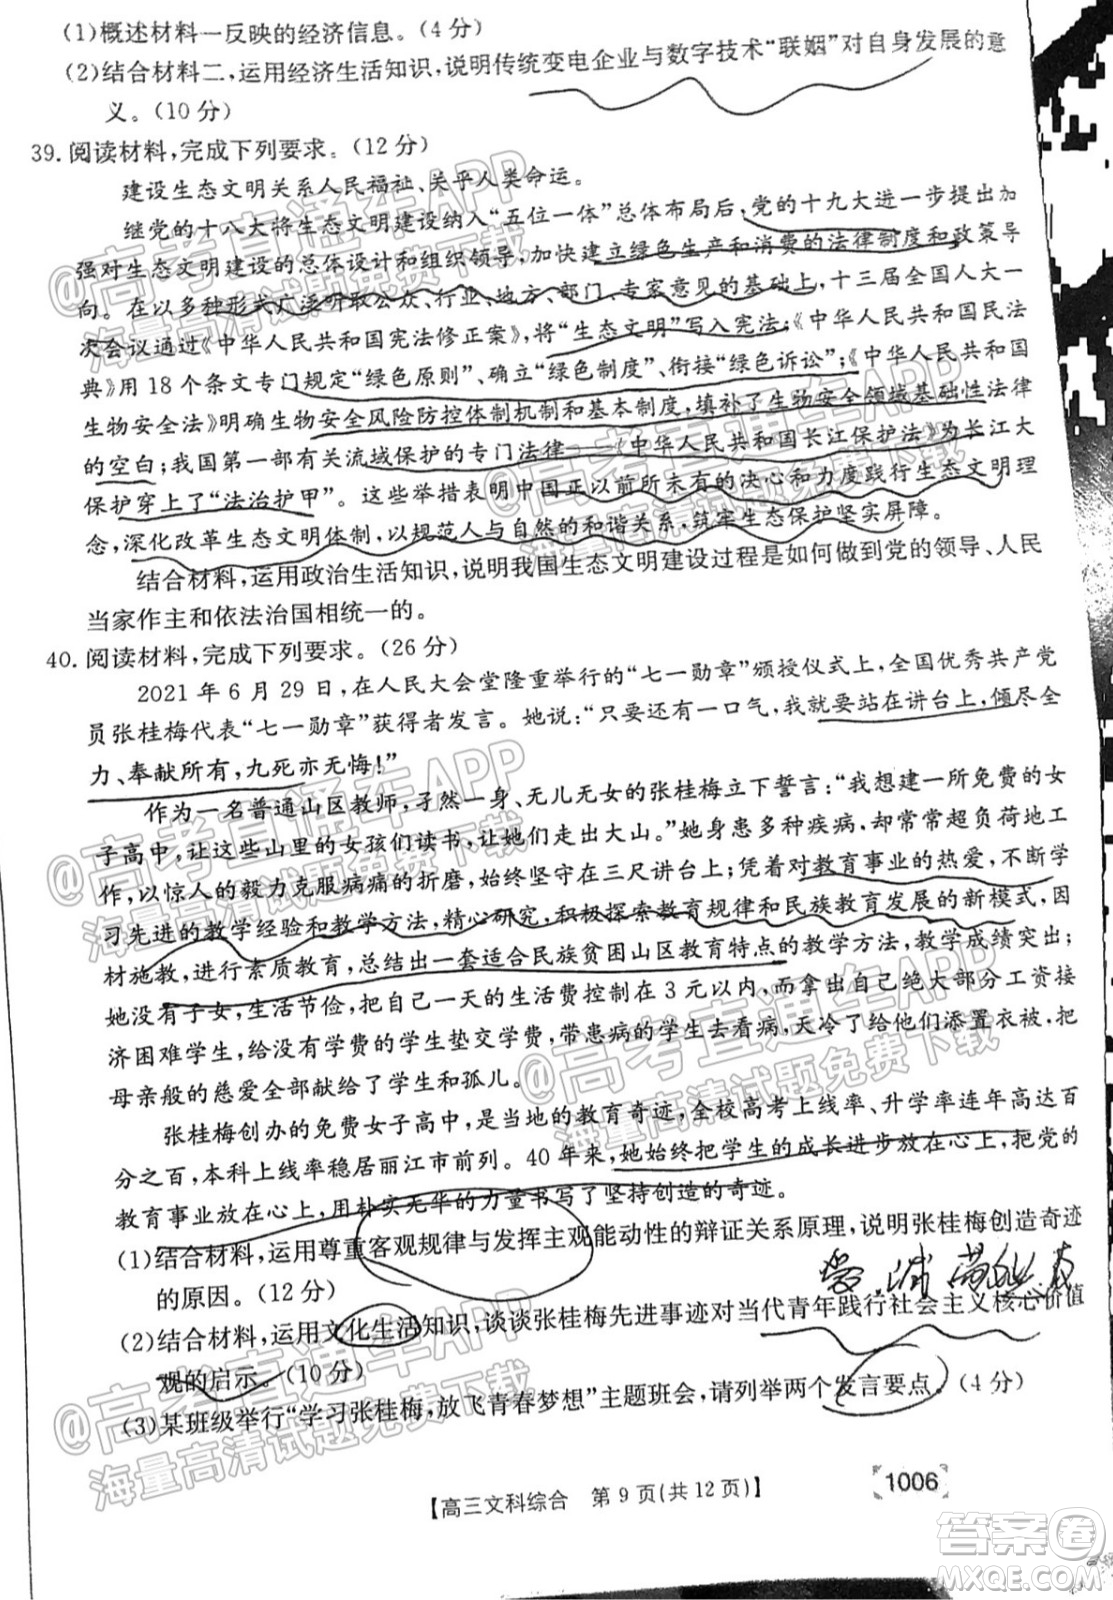 (1)概述材料一反映的经济信息。(4分)
(2)结合材料二,运用经济生活知识,说明传统变电企业与数字技术“联姻”对自身发展的意
义。(10分)
39.阅读材料,完成下列要求。(12分)
建设生态文明关系人民福祉、关乎人类命运。
继党的十八大将生态文明建设纳入“五位一体”总体布局后,党的十九大进一步提出加
强对生态文明建设的总体设计和组织领导,加快建立绿色生产和消费的法律制度和政策导
向。在以多种形式广泛听取公众、行业、地方、部门、专家意见的基础上,十三届全国人大一
次会议通过《中华人民共和国宪法修正案》,将“生态文明”写入宪法;《中华人民共和国民法
典》用18个条文专门规定“绿色原则”、确立“绿色制度”、衔接“绿色诉讼”;《中华人民共和国
生物安全法》明确生物安全风险防控体制机制和基本制度,填补了生物安全领域基础性法律
的空白;我国第一部有关流域保护的专门法律——《中华人民共和国长江保护法》为长江大
保护穿上了“法治护甲”。这些举措表明中国正以前所未有的决心和力度践行生态文明理
念,深化改革生态文明体制,以规范人与自然的和谐关系,筑牢生态保护坚实屏障。
结合材料,运用政治生活知识,说明我国生态文明建设过程是如何做到党的领导、人民
当家作主和依法治国相统一的。
40.阅读材料,完成下列要求。(26分)
2021年6月29日,在人民大会堂隆重举行的“七一勋章”颁授仪式上,全国优秀共产党
员张桂梅代表“七一勋章”获得者发言。她说:“只要还有一口气,我就要站在讲台上,倾尽全
力、奉献所有,九死亦无悔!”
作为一名普通山区教师,孑然一身、无儿无女的张桂梅立下誓言:“我想建一所免费的女
子高中,让这些山里的女孩们读书,让她们走出大山。”她身患多种疾病,却常常超负荷地工
作,以惊人的毅力克服病痛的折磨,始终坚守在三尺讲台上;凭着对教育事业的热爱,不断学
习先进的教学经验和教学方法,精心研究,积极探索教育规律和民族教育发展的新模式,因
材施教,进行素质教育,总结出一套适合民族贫困山区教育特点的教学方法,教学成绩突出;
她没有子女,生活节俭,把自己一天的生活费控制在3元以内,而拿出自己绝大部分工资接
济困难学生,给没有学费的学生垫交学费,带患病的学生去看病,天冷了给他们添置衣被,把
母亲般的慈爱全部献给了学生和孤儿。
张桂梅创办的免费女子高中,是当地的教育奇迹,全校高考上线率、升学率连年高达百
分之百,本科上线率稳居丽江市前列。40年来,她始终把学生的成长进步放在心上,把党的
教育事业放在心上,用朴实无华的力量书写了坚持创造的奇迹。
(1)结合材料,运用尊重客观规律与发挥主观能动性的辩证关系原理,说明张桂梅创造奇迹
的原因。(12分)
(2)结合材料,运用文化生活知识,谈谈张桂梅先进事迹对当代青年践行社会主义核心价值
观的启示。(10分)
(3)某班级举行“学习张桂梅,放飞青春梦想”主题班会,请列举两个发言要点。(4分)
【高三文科综合 第9页(共12页)】
1006
@高考直通车APP
海量高清试题免费下载
@高考直通车APP
海量高清试题免费下载
@高考直通车APP
海量高清试题免费下载
@高考直通车APP
海量高清试题免费下载
@高考直通车APP
海量高清试题免费下载
答案卷
MXQE.COM